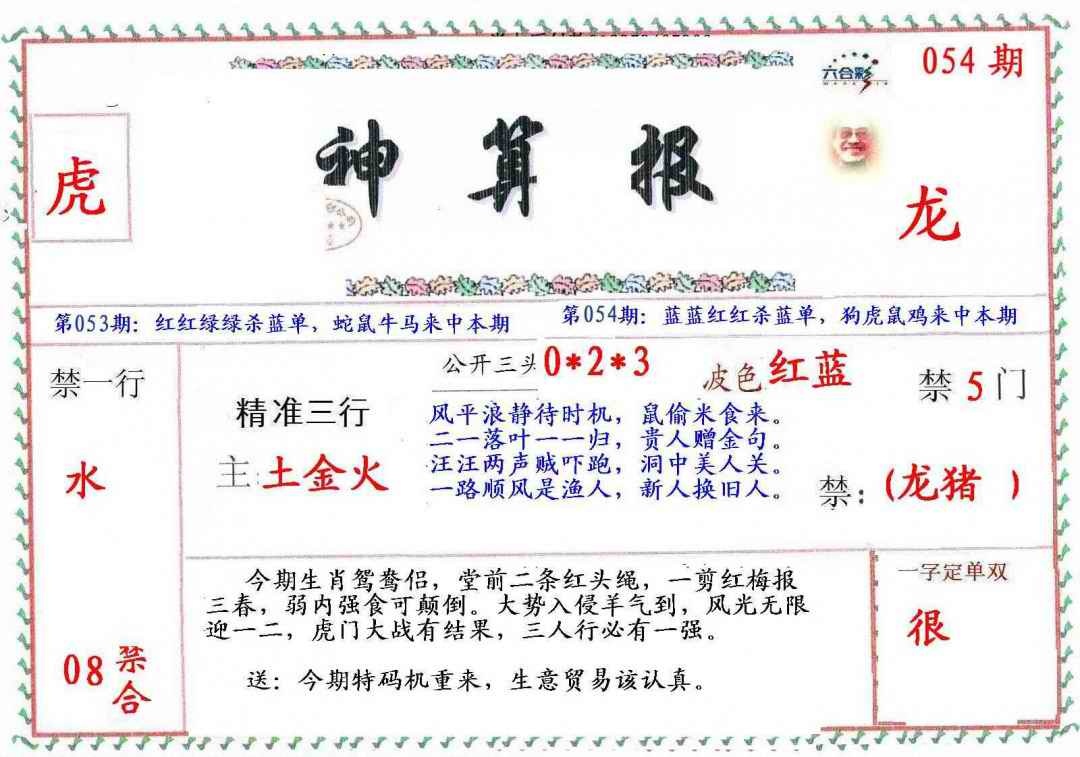 054期
六合彩
虎
神算报
龙
第053期：红红绿绿杀蓝单，蛇鼠牛马来中本期
第054期：蓝蓝红红杀蓝单，狗虎鼠鸡来中本期
禁一行
水
08
禁
合
精准三行
主:土金火
公开三头0*2*3
波色红蓝
风平浪静待时机，鼠偷米食来。
二一落叶一一归，贵人赠金句。
汪汪两声贼吓跑，洞中美人关。
一路顺风是渔人，新人换旧人。
禁5门
禁:(龙猪 )
今期生肖鸳鸯侣，堂前二条红头绳，一剪红梅报
三春，弱内强食可颠倒。大势入侵羊气到，风光无限
迎一二，虎门大战有结果，三人行必有一强。
送：今期特码机重来，生意贸易该认真。
一字定单双
很